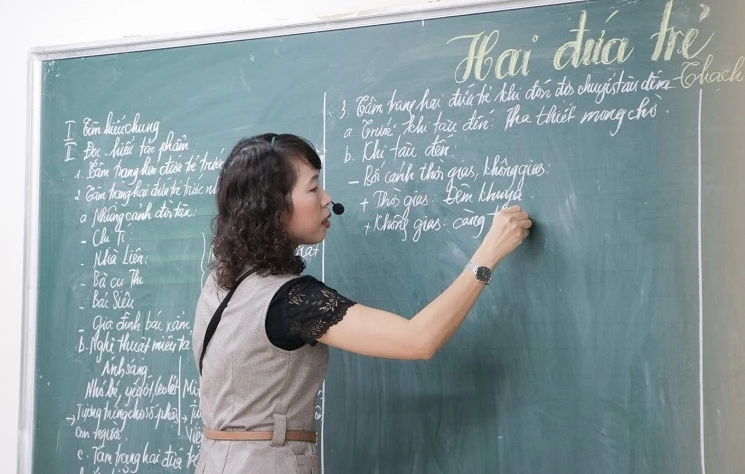 Hai đứa trẻ
Thạch
I Tìm hiểu chung
II Đọc - hiểu tác phẩm
1. Tâm trạng hai đứa trẻ trước
2. Tâm trạng hai đứa trẻ trước
a. Những cảnh đời tàn:
- Chị Tí
- Nhà Liên:
- Bà cụ Thi
- Bác Siêu
- Gia đình bác xẩm
b. Nghệ thuật miêu tả
Ánh sáng
Nhỏ bé, yếu ớt, leo lét
→ Tượng trưng cho số phận
con người
c. Tâm trạng hai đứa trẻ
3. Tâm trạng hai đứa trẻ khi đón đợi chuyến tàu đêm
a. Trước khi tàu đến: Tha thiết mong chờ.
b. Khi tàu đến
- Bối cảnh thời gian, không gian:
+ Thời gian: Đêm khuya
+ Không gian: càng